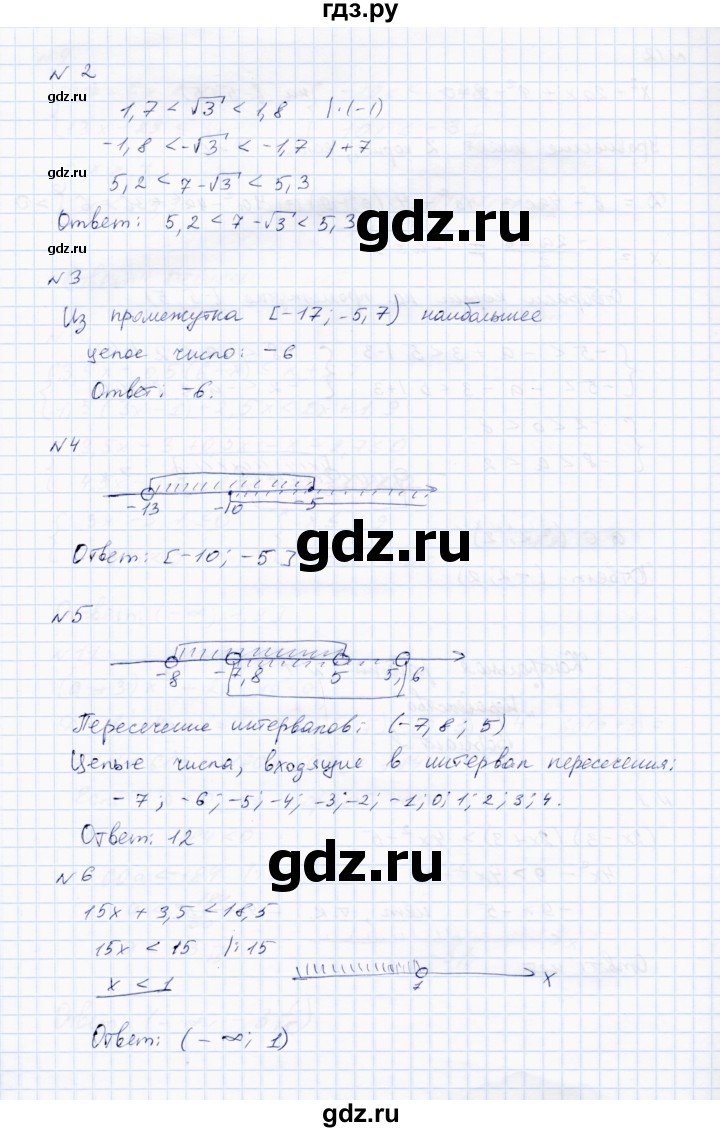 гдз.ру
№ 2
gdz.ru
1,7 < √3 < 1,8 |·(-1)
-1,8 < -√3 < -1,7 |+7
gdz.ru
5,2 < 7-√3 < 5,3
Ответ: 5,2 < 7-√3 < 5,3
gdz.ru
№3
Из промежутка [-17; -5,7) наибольшее
целое число: -6
Ответ: -6.
№4
-13 -10 -5
gdz.ru
Ответ: [-10; -5]
№5
-8 -7,8 5 5,6
gdz.ru
Пересечение интервалов: (-7,8; 5)
Целые числа, входящие в интервал пересечения:
-7; -6; -5; -4; -3; -2; -1; 0; 1; 2; 3; 4.
Ответ: 12
gdz.ru
№6
15x + 3,5 < 18,5
15x < 15 |:15
x < 1
1 x
Ответ: (-∞; 1)
gdz.ru
gdz.ru